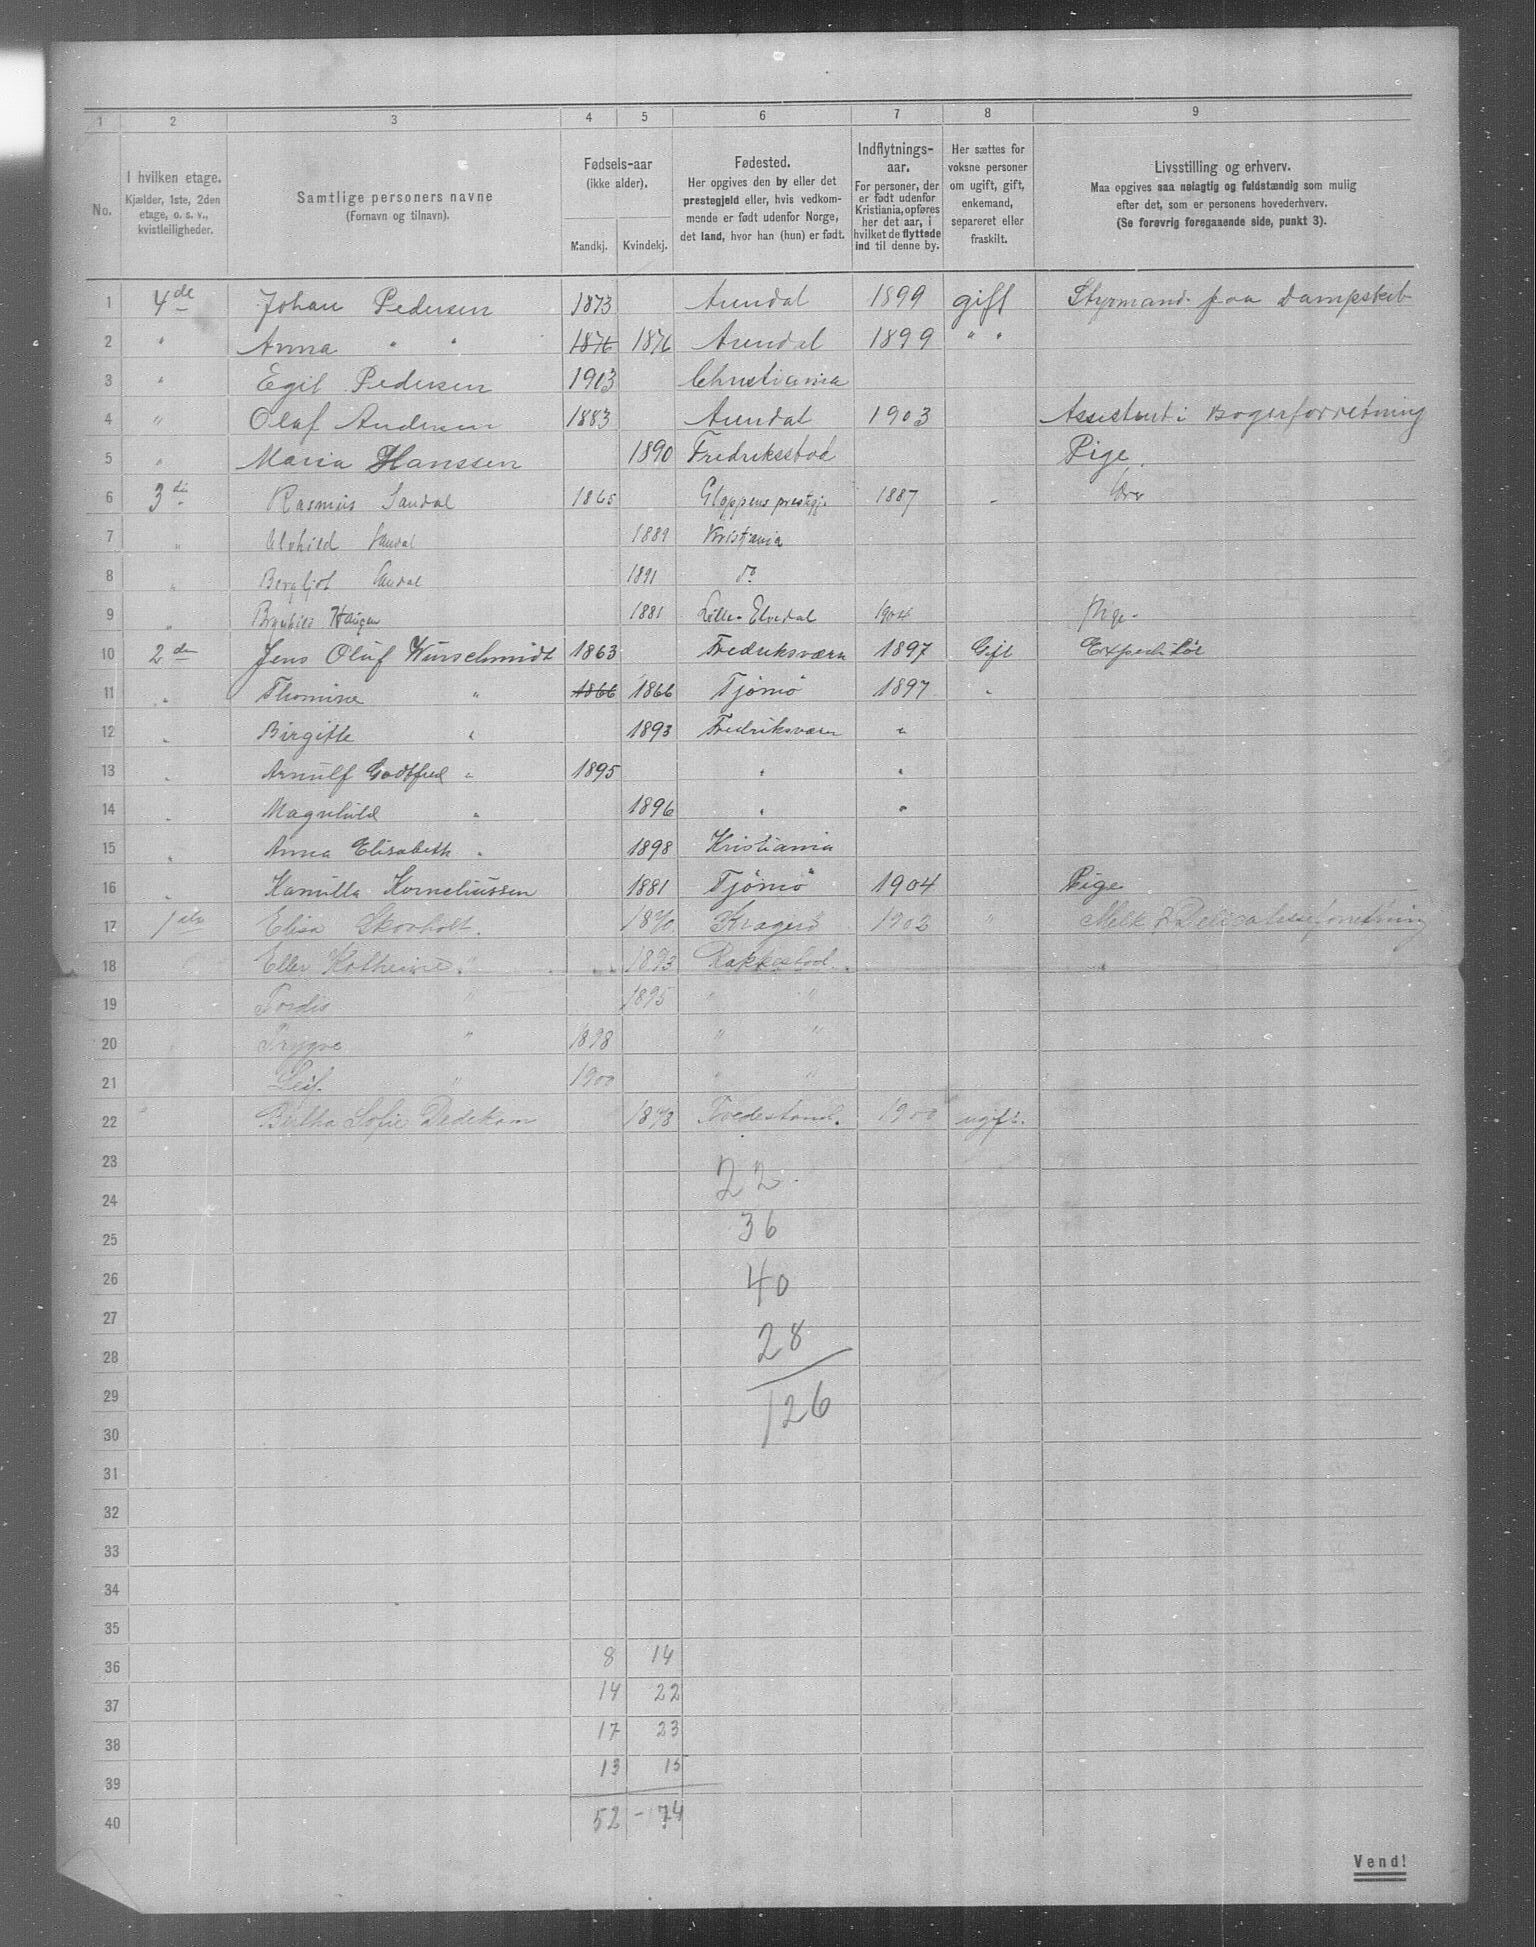 1 2 3 4 5 6 7 8 9
No.
I hvilken etage.
Kjælder, 1ste, 2den
etage, o. s. v.,
kvistleiligheder.
Samtlige personers navne
(Fornavn og tilnavn).
Fødsels-aar
(ikke alder).
Mandkj. Kvindekj.
Fødested.
Her opgives den by eller det
prestegjeld eller, hvis vedkom-
mende er født udenfor Norge,
det land, hvor han (hun) er født.
Indflytnings-
aar.
For personer, der
er født udenfor
Kristiania, opføres
her det aar, i
hvilket de flyttede
ind til denne by.
Her sættes for
voksne personer
om ugift, gift,
enkemand,
separeret eller
fraskilt.
Livsstilling og erhverv.
Maa opgives saa nøiagtig og fuldstændig som mulig
efter det, som er personens hovederhverv.
(Se forøvrig foregaaende side, punkt 3).
1 4de Johan Pedersen 1873 Arendal 1899 gift Styrmand paa Dampskib
2 " Anna " " 1876 1876 Arendal 1899 " "
3 " Egil Pedersen 1903 Christiania
4 " Olaf Andersen 1883 Arendal 1903 Assistent i Bogerforretning
5 " Maria Hanssen 1890 Fredriksstad Pige
6 3die Rasmus Sandal 1865 Gloppens prestgj. 1887 -
7 " Alvhild Sandal 1889 Kristiania
8 " Bergljot Sandal 1891 do
9 " Brynhild Haugen 1881 Lille-Elvedal 1904 Pige
10 2den Jens Oluf Würschmidt 1863 Fredriksværn 1897 Gift Expeditör
11 " Thomine " 1866 1866 Tjömö 1897 "
12 " Birgitte " 1893 Fredriksværn "
13 " Arnulf Godtfred " 1895 " "
14 " Magnhild " 1896 " "
15 " Anna Elisabeth " 1898 Kristiania
16 " Kamilla Korneliussen 1881 Tjömö 1904 Pige
17 1ste Elisa Skovholt. 1870 Kragerö 1902 " Melk & Delicatesseforretning
18 Ellen Kathrine " 1893 Rakkestad
19 Tordis " 1895 " "
20 Trygve " 1898 " "
21 Leif " 1900 " "
22 " Bertha Sofie Dedekam 1878 Tvedestrand. 1900 ugift.
23 22
24
25 36
26 40
27
28 28
29 126
30
31
32
33
34
35
36 8 14
37 14 22
38 17 23
39 13 15
40 52 - 74
Vend!